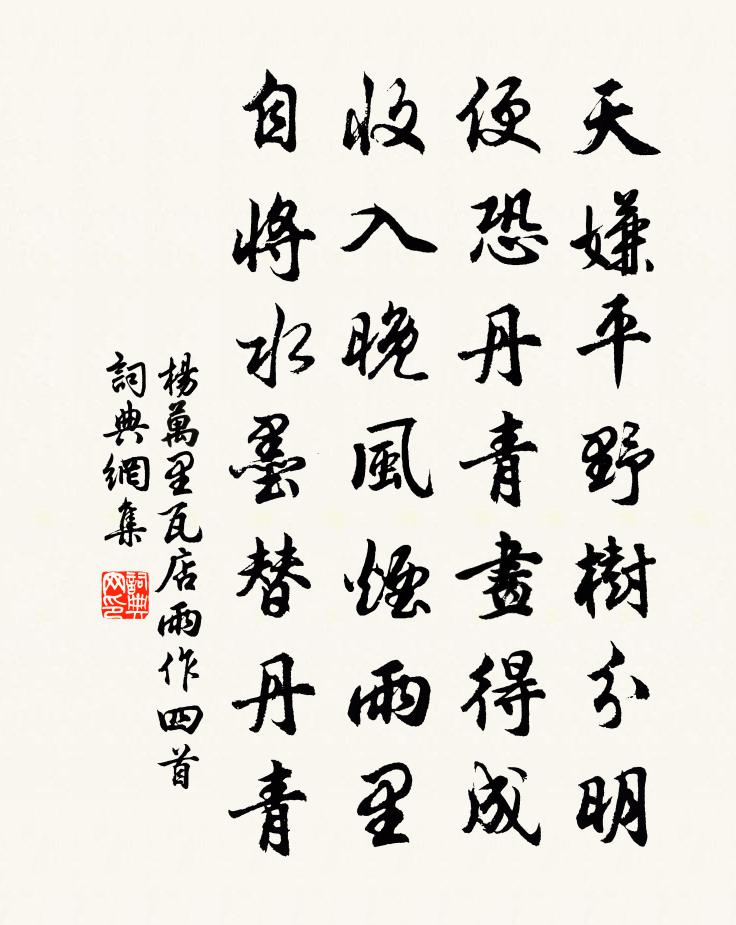 天嫌平野樹分明
便恐丹青畫得成
收入晚風煙雨里
自將水墨替丹青
楊萬里瓦店雨作四首
詞典網集
詞典网印